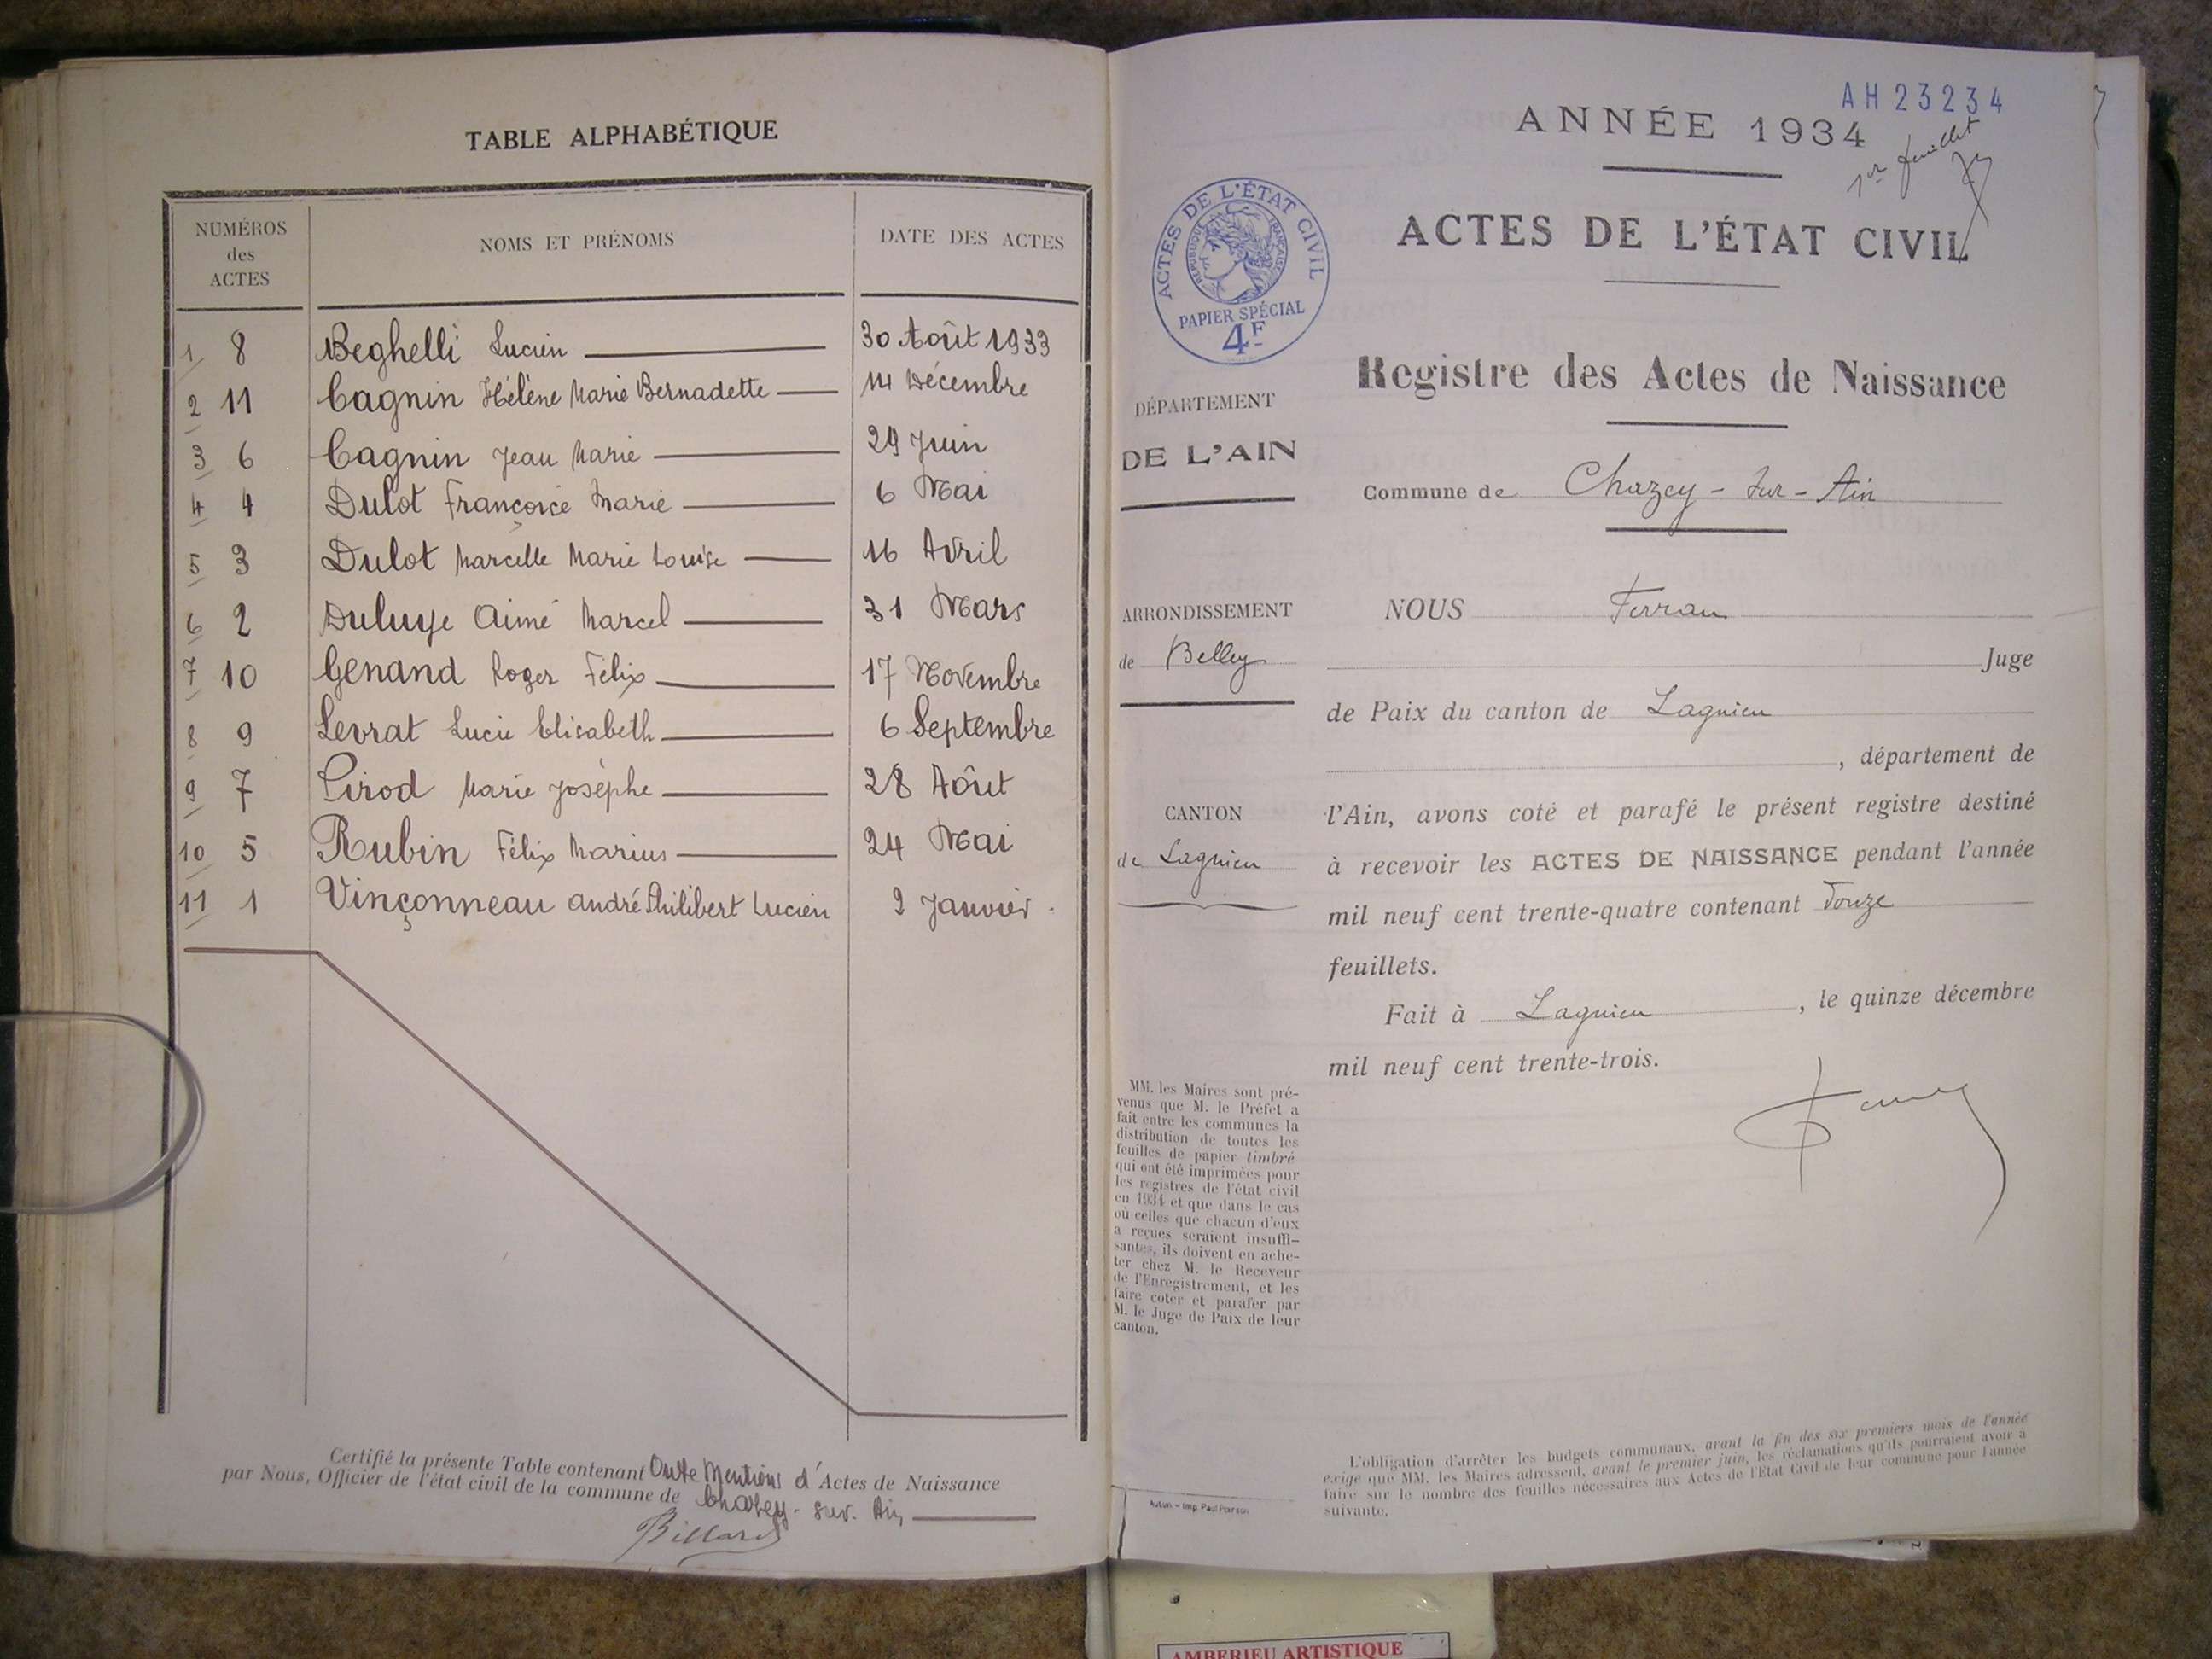 TABLE ALPHABÉTIQUE
NUMÉROS des ACTES NOMS ET PRÉNOMS DATE DES ACTES
1 8 Beghelli Lucien 30 Août 1933
2 11 Cagnin Hélène Marie Bernadette 14 Décembre
3 6 Cagnin Jean Marie 29 Juin
4 4 Dulot Françoise Marie 6 Mai
5 3 Dulot Marcelle Marie Louise 16 Avril
6 2 Duluye Aimé Marcel 31 Mars
7 10 Genand Roger Félix 17 Novembre
8 9 Levrat Lucie Elisabeth 6 Septembre
9 7 Pirod Marie Josèphe 28 Août
10 5 Rubin Félix Marius 24 Mai
11 1 Vinçonneau André Philibert Lucien 2 Janvier
Certifié la présente Table contenant Onze Mentions d'Actes de Naissance
par Nous, Officier de l'état civil de la commune de Chazey-sur-Ain
Billard
AH 23234
ANNÉE 1934
1er feuillet
ACTES DE L'ÉTAT CIVIL
ACTES DE L'ÉTAT CIVIL
RÉPUBLIQUE FRANÇAISE
PAPIER SPÉCIAL
4F
Registre des Actes de Naissance
DÉPARTEMENT
DE L'AIN
Commune de Chazey-sur-Ain
ARRONDISSEMENT
de Belley
CANTON
de Lagnieu
NOUS Ferran
Juge
de Paix du canton de Lagnieu
, département de
l'Ain, avons coté et parafé le présent registre destiné
à recevoir les ACTES DE NAISSANCE pendant l'année
mil neuf cent trente-quatre contenant Douze
feuillets.
Fait à Lagnieu, le quinze décembre
mil neuf cent trente-trois.
MM. les Maires sont pré-
venus que M. le Préfet a
fait entre les communes la
distribution de toutes les
feuilles de papier timbré
qui ont été imprimées pour
les registres de l'état civil
en 1934 et que dans le cas
où celles que chacun d'eux
a reçues seraient insuffi-
santes, ils doivent en ache-
ter chez M. le Receveur
de l'Enregistrement, et les
faire coter et parafer par
M. le Juge de Paix de leur
canton.
L'obligation d'arrêter les budgets communaux, avant la fin des six premiers mois de l'année
exige que MM. les Maires adressent, avant le premier juin, les réclamations qu'ils pourraient avoir à
faire sur le nombre des feuilles nécessaires aux Actes de l'Etat Civil de leur commune pour l'année
suivante.
Autun - Imp. Paul
AMBERIEU ARTISTIQUE